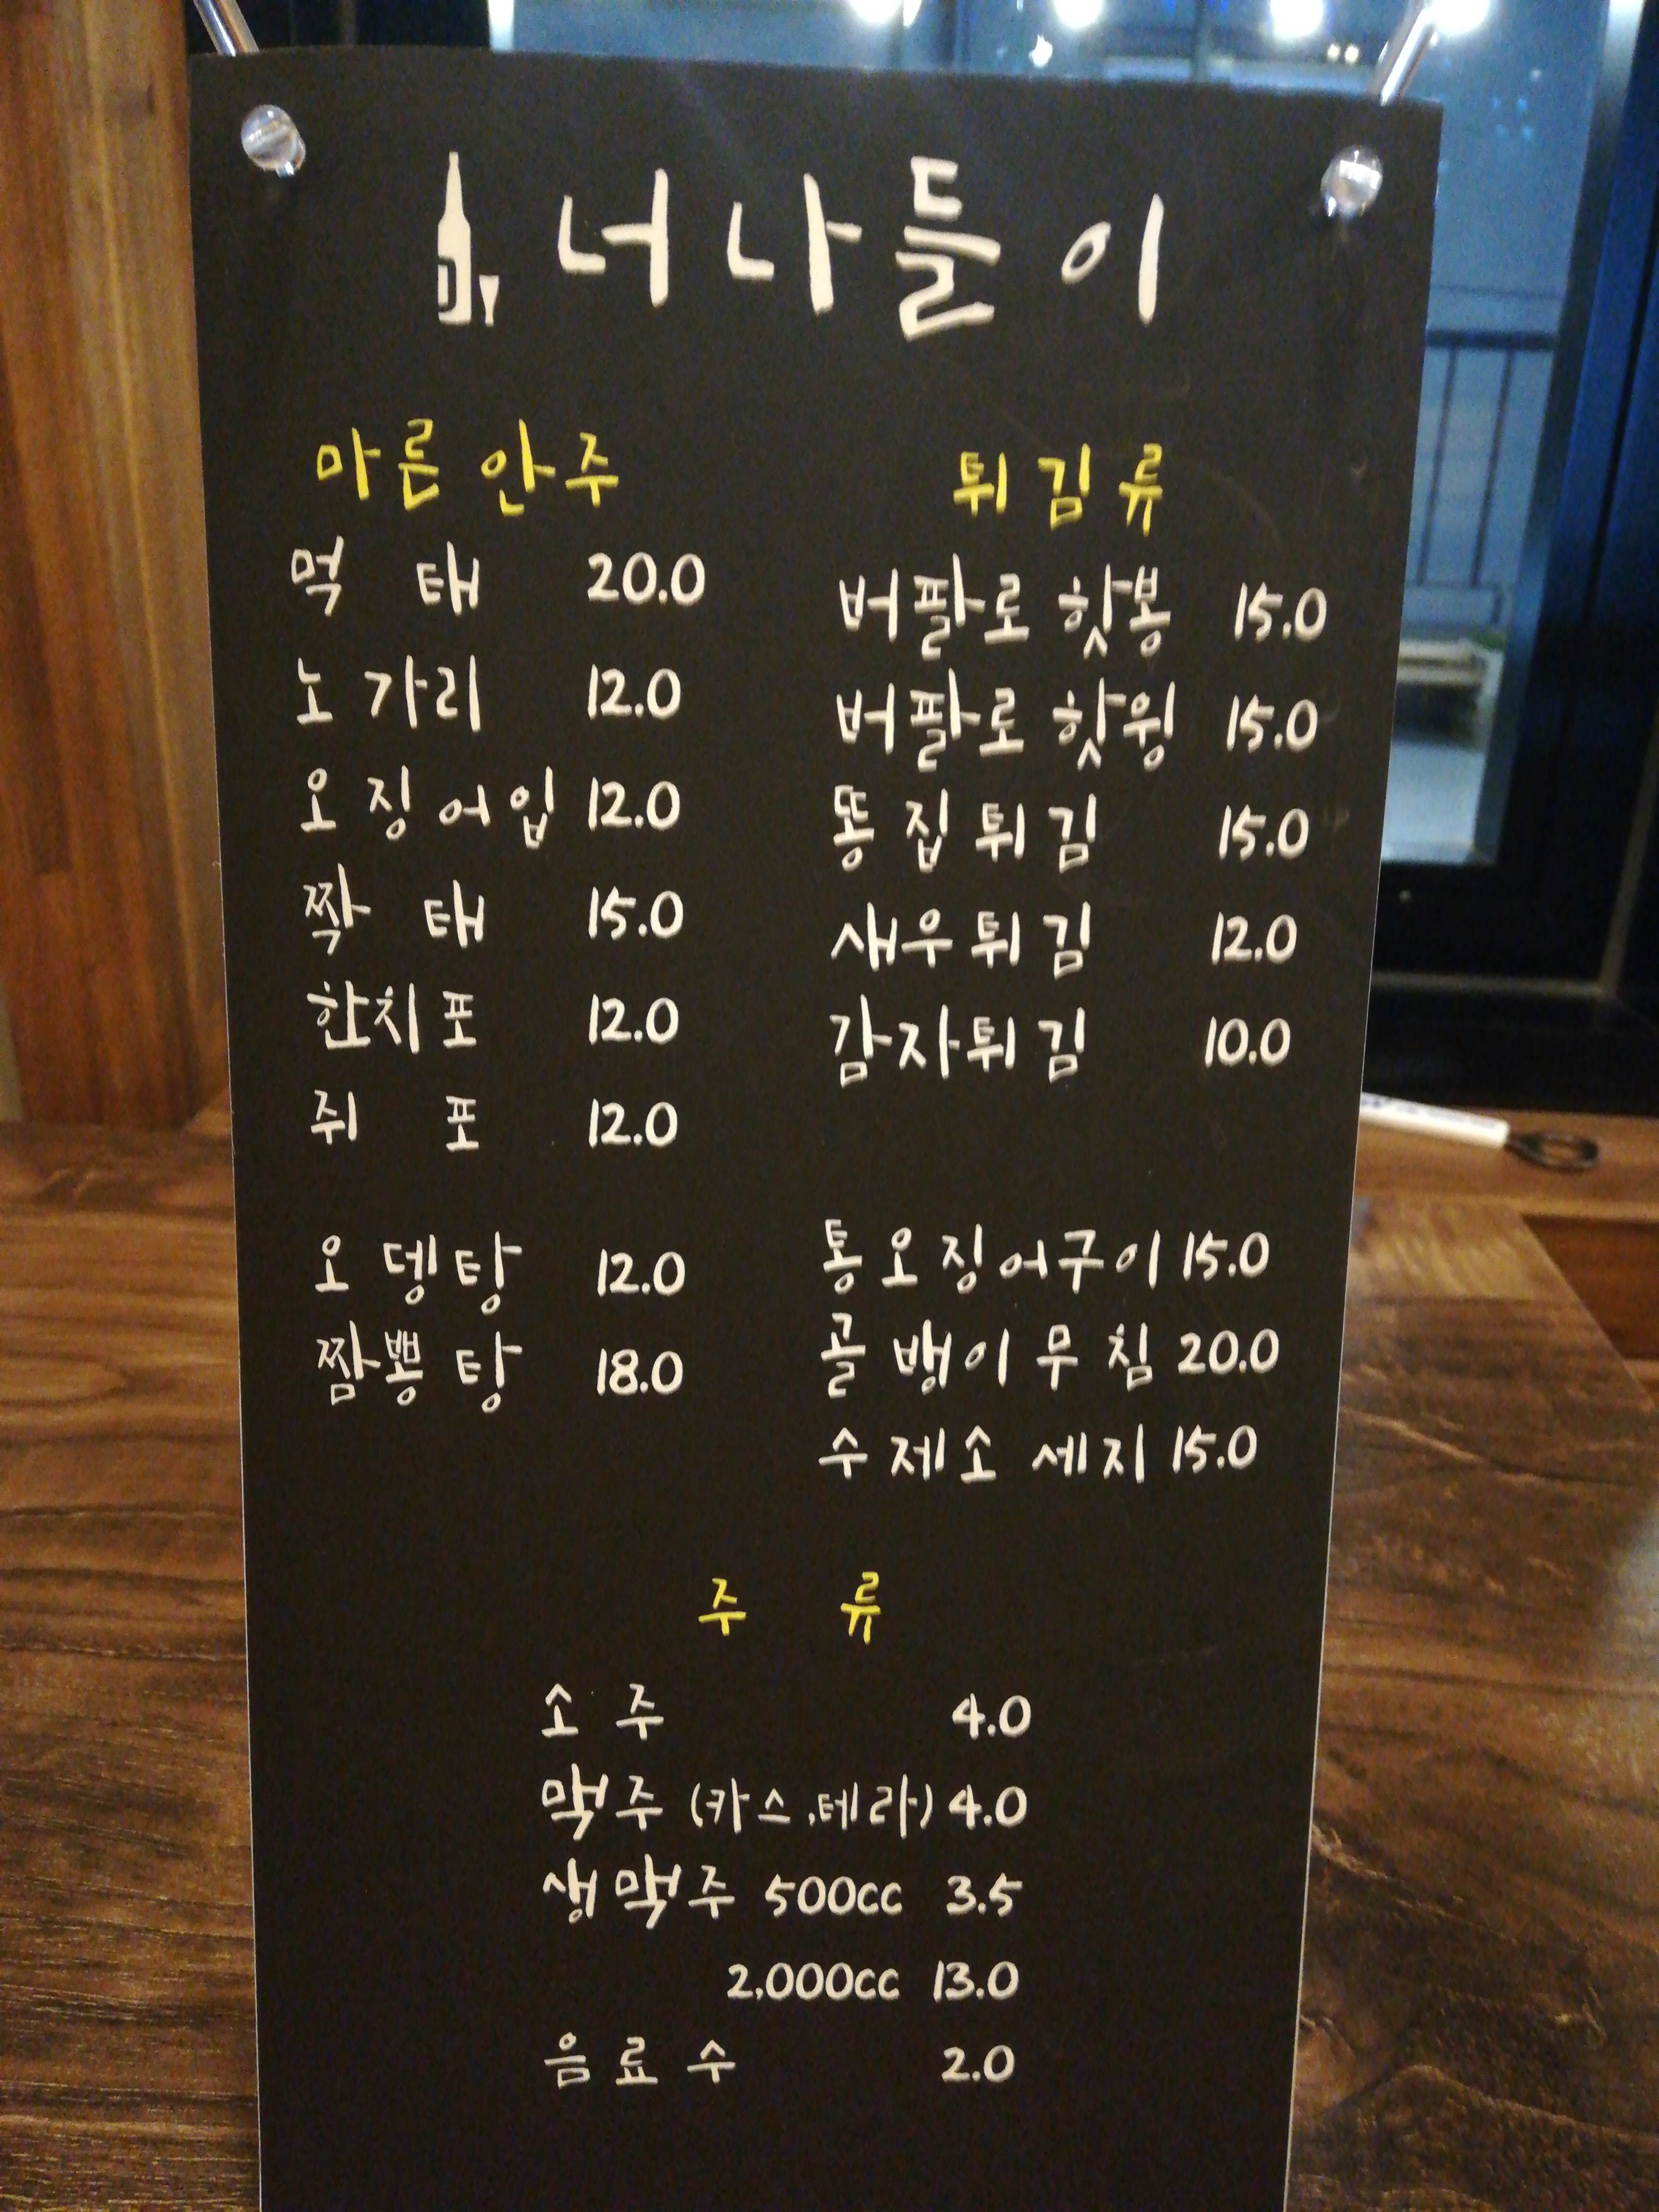 너나들이
마른안주
먹태 20.0
노가리 12.0
오징어입 12.0
짝태 15.0
한치포 12.0
쥐포 12.0
오뎅탕 12.0
짬뽕탕 18.0
튀김류
버팔로 핫봉 15.0
버팔로 핫윙 15.0
똥집튀김 15.0
새우튀김 12.0
감자튀김 10.0
통오징어구이 15.0
골뱅이무침 20.0
수제소세지 15.0
주류
소주 4.0
맥주 (카스,테라) 4.0
생맥주 500cc 3.5
2,000cc 13.0
음료수 2.0